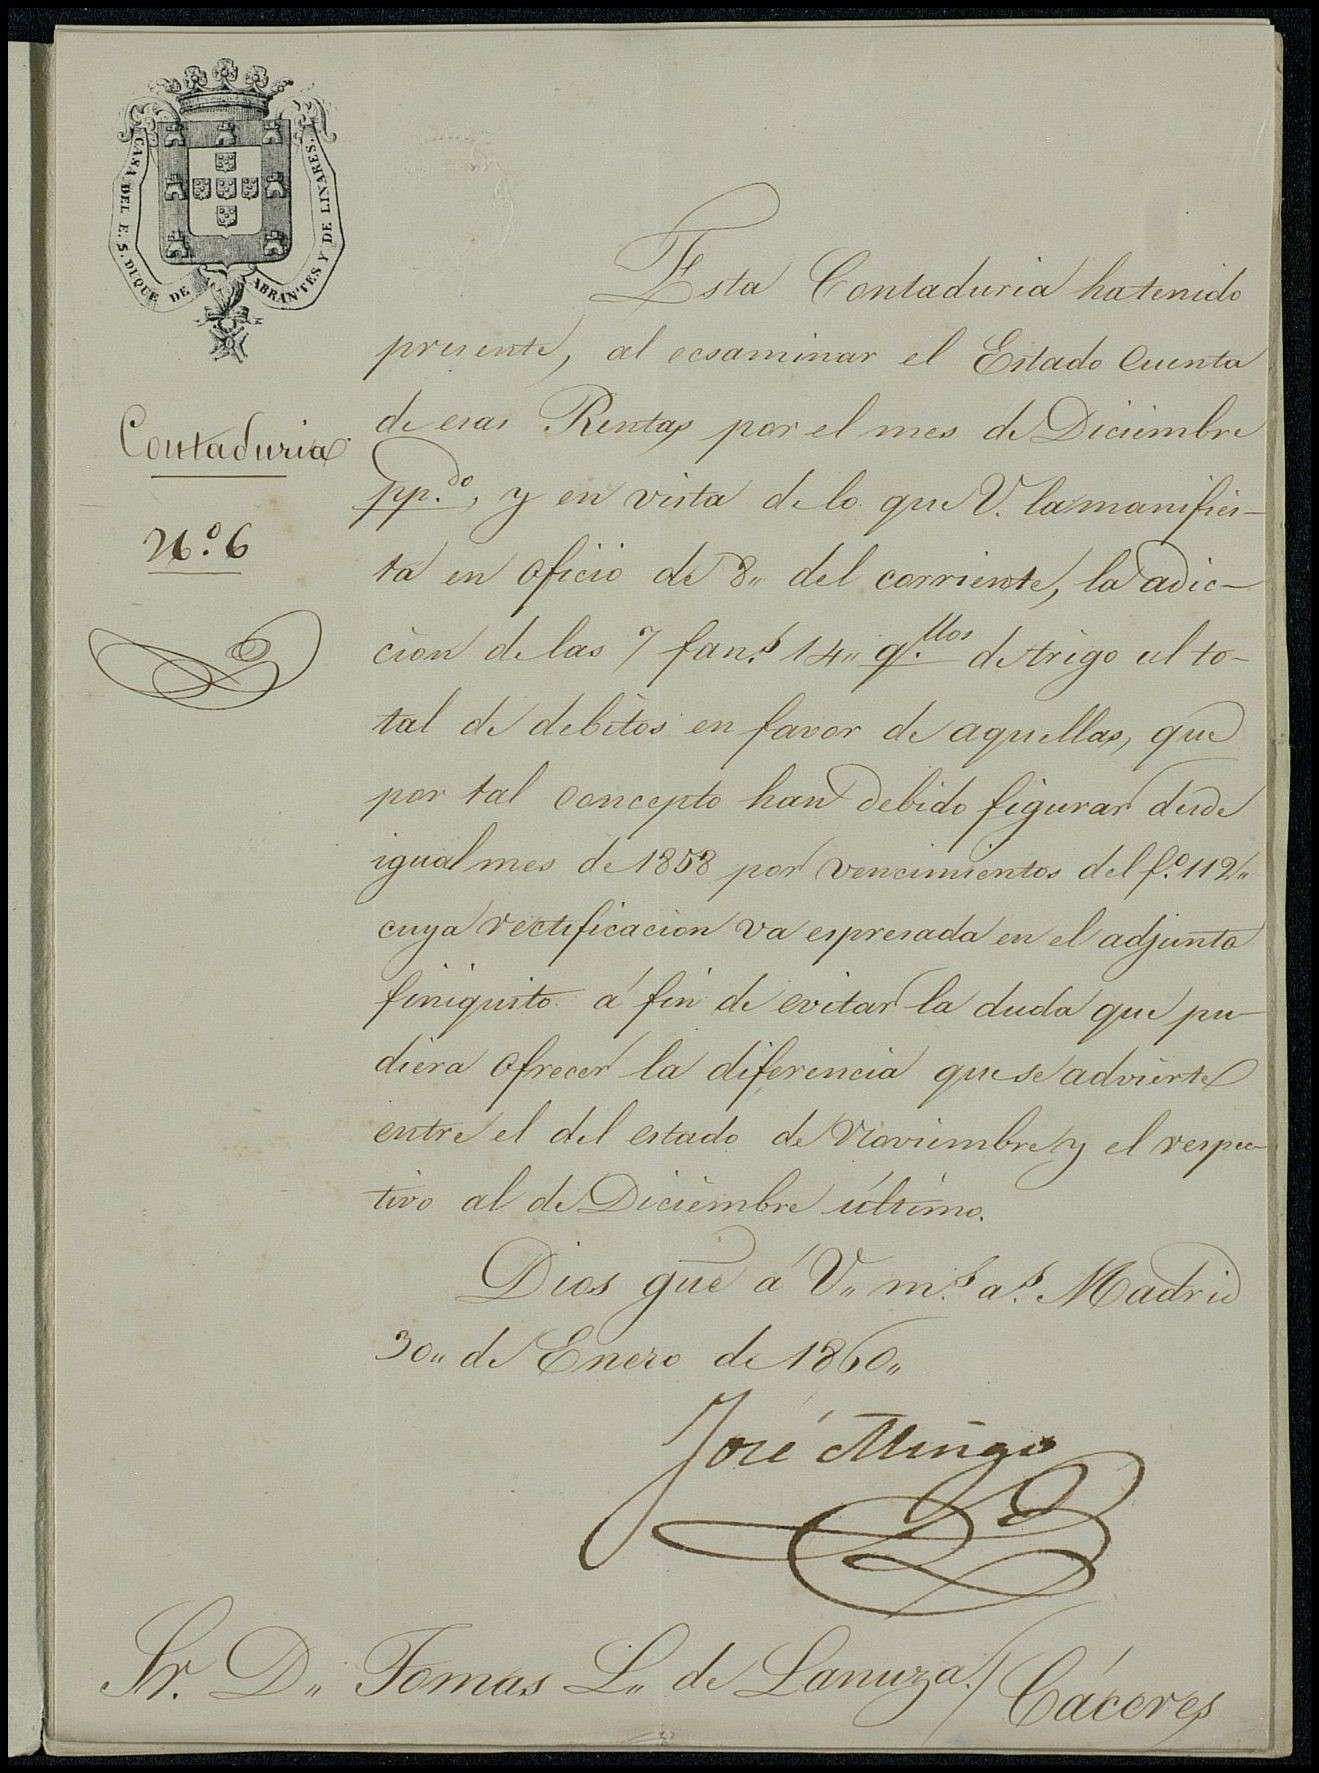 CASA DEL E. S. DUQUE DE ABRANTES Y DE LINARES.
Contaduria
Nº. 6
Esta Contaduria ha tenido
presente, al ecsaminar el Estado Cuenta
de esas Rentas por el mes de Diciembre
pp.do, y en vista de lo que V. la manifies-
ta en oficio de 8,, del corriente, la adic-
cion de las 7 fan.s 14,, q.llos de trigo al to-
tal de debitos en favor de aquellas, que
por tal concepto han debido figurar desde
igual mes de 1858 por vencimientos del fº. 112,,
cuya rectificacion va espresada en el adjunto
finiquito á fin de evitar la duda que pu-
diera ofrecer la diferencia que se advierte
entre el del estado de Noviembre y el respec-
tivo al de Diciembre último.
Dios gue á V,, m.s a.s Madrid
30,, de Enero de 1860,,
José Mingo
Sr. D,, Tomas L,, de Lanuza./ Cáceres